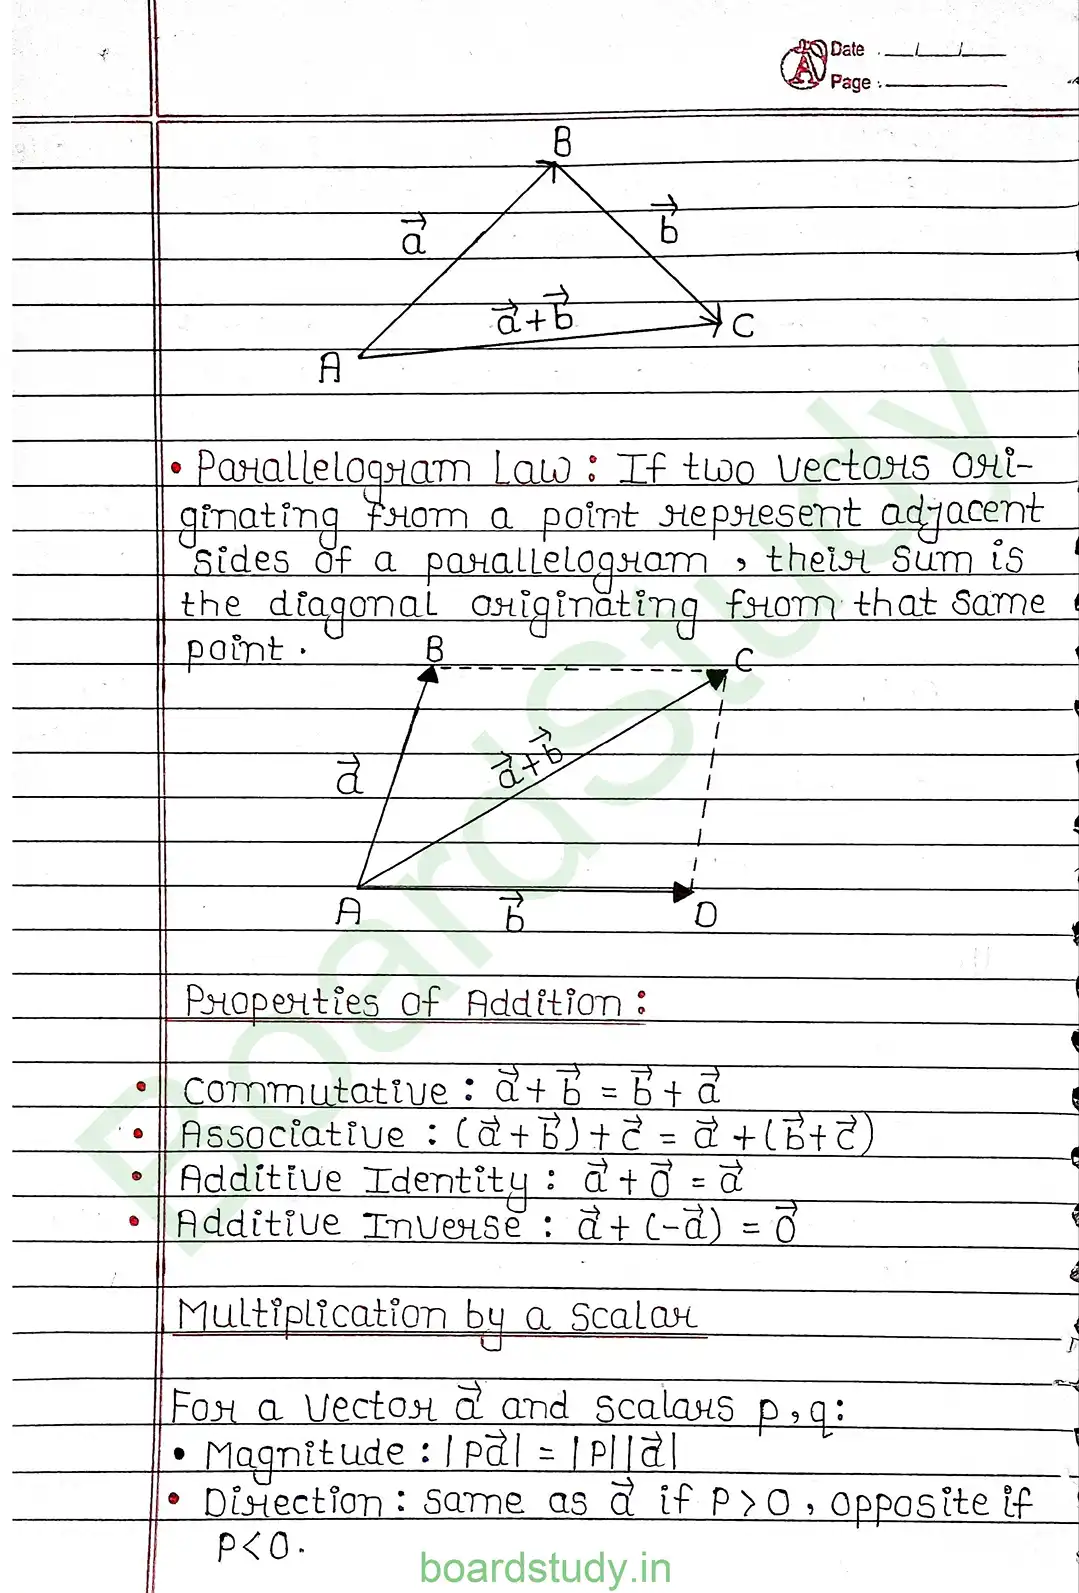 Date : __/__/__
Page :
B
a⃗
b⃗
a⃗+b⃗
C
A
• Parallelogram Law : If two vectors ori-
ginating from a point represent adjacent
sides of a parallelogram , their sum is
the diagonal originating from that same
point .
B
C
a⃗
a⃗+b⃗
A
b⃗
D
Properties of Addition :
• Commutative : a⃗ + b⃗ = b⃗ + a⃗
• Associative : (a⃗ + b⃗) + c⃗ = a⃗ + (b⃗ + c⃗)
• Additive Identity : a⃗ + 0⃗ = a⃗
• Additive Inverse : a⃗ + (-a⃗) = 0⃗
Multiplication by a scalar
For a vector a⃗ and scalars p , q :
• Magnitude : |pa⃗| = |p||a⃗|
• Direction : same as a⃗ if p > 0 , opposite if
p < 0 .
BoardStudy
boardstudy.in